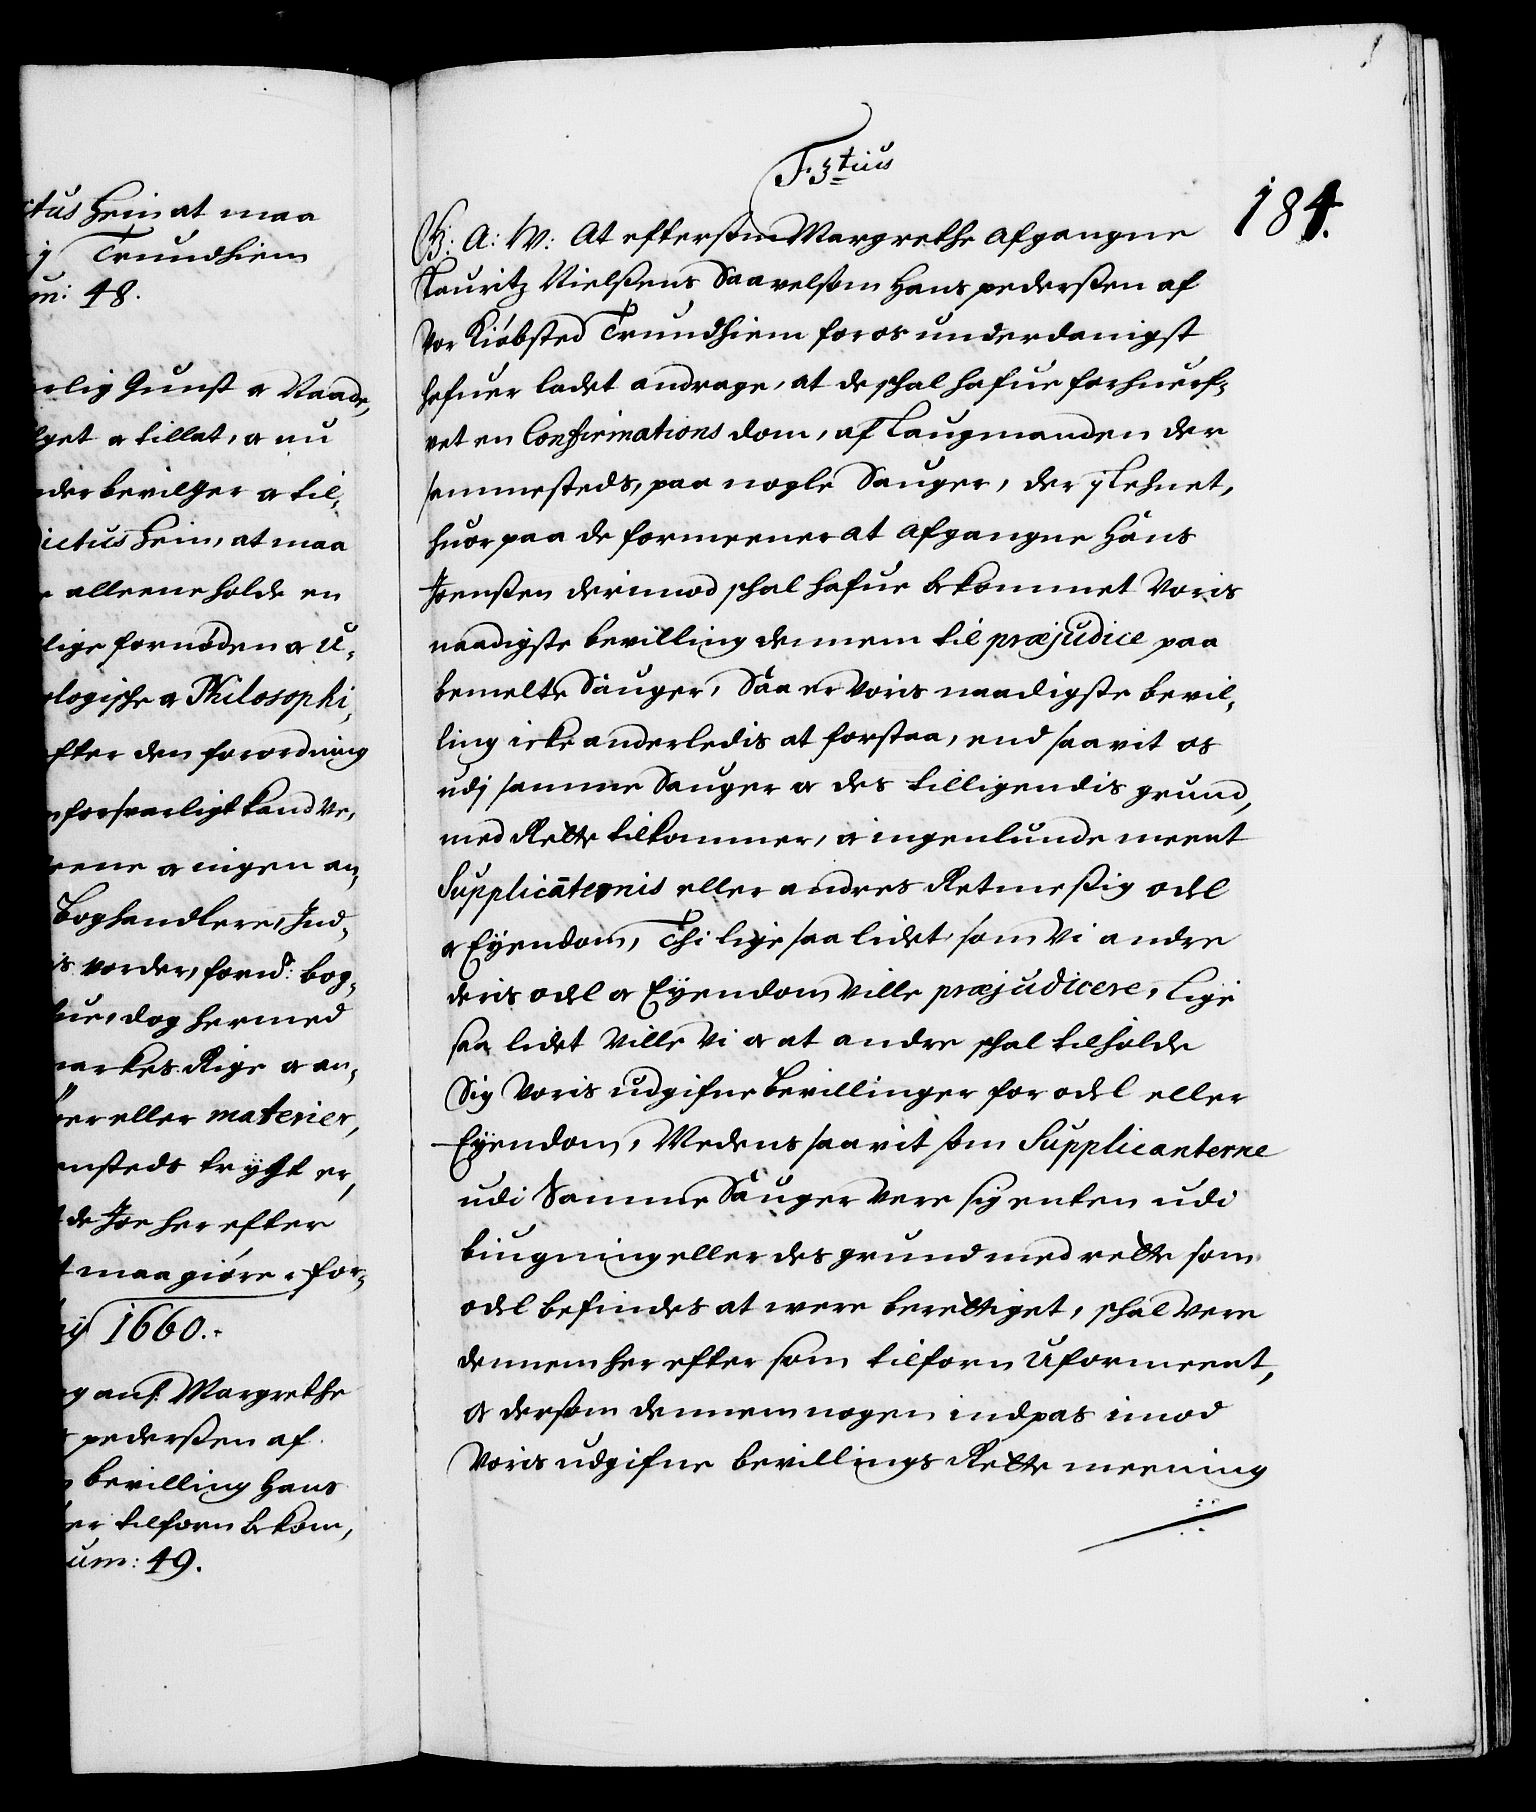 ctus Hein at maa
j Trundhiem
um: 48.
erlig Gunst oc Naade,
lget oc tillat, oc nu
nder bevilger oc til-
ictus Hein, at maa
alleene holde en
lige fornøden oc U-
ologische oc Philosophi-
fter den forordning
forsvarligt kand Ve-
eene oc ingen an-
Boghandlere, Ind-
is vorder, forñ: bog-
ue, dog hermed
markes Rige oc an-
er eller materier,
ensteds trygt er,
de Joe her efter
maa giøre, for-
ij 1660.
og anf. Margrethe
pederßen af
bevilling Hans
er tilforn bekom-
um: 49.
184.
F 3tius
G: A: W: At eftersom Margrethe Afgangne
Lauritz Nielßens Saavelsom Hans pederßen af
Vor Kiøbsted Trundhiem for os underdanigst
hafuer ladet andrage, at de schal hafue forhuerf-
vet en Confirmations dom, af Laugmanden der
sammesteds, paa nogle Sauger, der j Lehnet,
huor paa de formeener at Afgangne Hans
Joenßen derimod schal hafue bekommet Voris
naadigste bevilling dennem til præjudice paa
bemelte Sauger, Saa er Voris naadigste bevil-
ling icke anderledis at forstaa, end saavit os
udj samme Sauger oc des tilligendis grund,
med Rette tilkommer, oc ingenlunde meent
Supplicãternis eller andres Retmeßig odel
oc Eyendom, Thi lige saa lidet som Vi andre
deris odel oc Eyendom Ville præjudicere, Lige
saa lidet Ville Vi oc at andre schal tilholde
Sig Voris udgifne Bevillinger for odel eller
Eyendom, Medens saavit som Supplicanterne
udi Samme Sauger Vere sig enten udi
biugning eller des grund med rette som
odel befindes at were berettiget, schal Vere
dennem her efter som tilforn Uformeent,
oc dersom dennem nogen indpas imod
Voris udgifne bevillings Rette meening